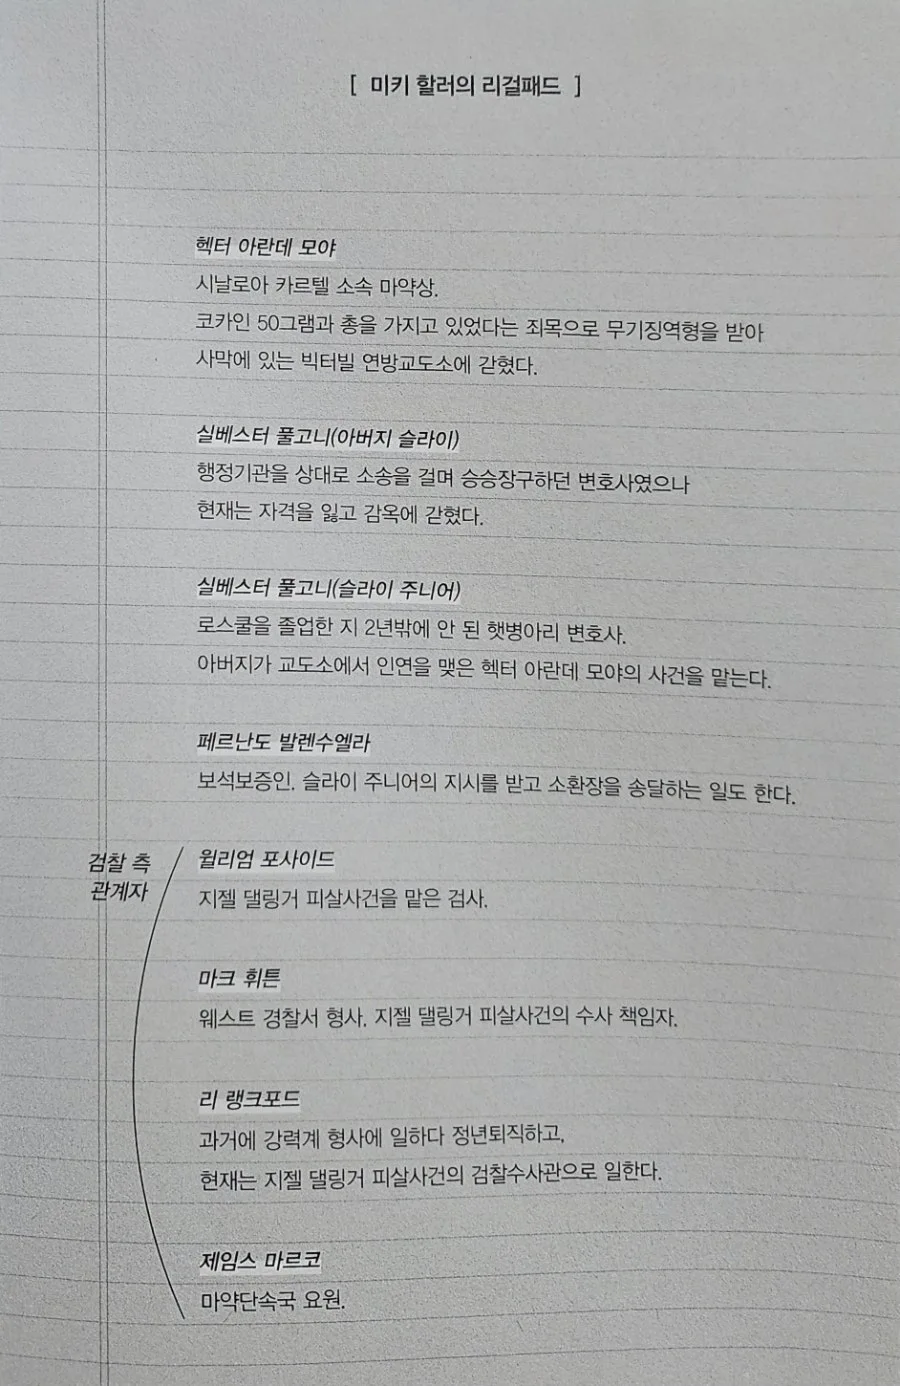 [ 미키 할러의 리걸패드 ]
헥터 아란데 모야
시날로아 카르텔 소속 마약상.
코카인 50그램과 총을 가지고 있었다는 죄목으로 무기징역형을 받아
사막에 있는 빅터빌 연방교도소에 갇혔다.
실베스터 풀고니(아버지 슬라이)
행정기관을 상대로 소송을 걸며 승승장구하던 변호사였으나
현재는 자격을 잃고 감옥에 갇혔다.
실베스터 풀고니(슬라이 주니어)
로스쿨을 졸업한 지 2년밖에 안 된 햇병아리 변호사.
아버지가 교도소에서 인연을 맺은 헥터 아란데 모야의 사건을 맡는다.
페르난도 발렌수엘라
보석보증인. 슬라이 주니어의 지시를 받고 소환장을 송달하는 일도 한다.
검찰 측
관계자
윌리엄 포사이드
지젤 댈링거 피살사건을 맡은 검사.
마크 휘튼
웨스트 경찰서 형사. 지젤 댈링거 피살사건의 수사 책임자.
리 랭크포드
과거에 강력계 형사에 일하다 정년퇴직하고,
현재는 지젤 댈링거 피살사건의 검찰수사관으로 일한다.
제임스 마르코
마약단속국 요원.